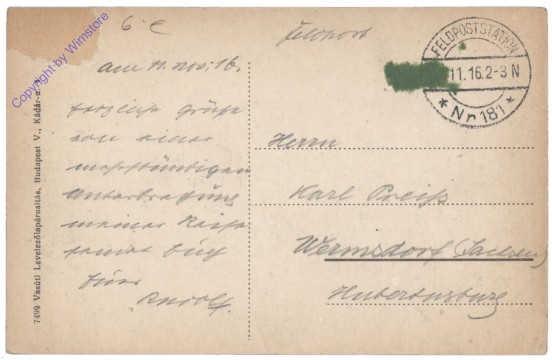 6.-€
Feldpost
FELDPOSTSTATION
11.16.2-3 N
* Nr 181 *
am 11. Nov. 16.
Herzliche Grüße
von einer
mehrstündigen
Unterbrechung
meiner Reise
sendet Euch
Euer
Rudolf.
Herrn
Karl Preiß
Wermsdorf (Sachsen)
Hubertusburg
7499 Vasúti Levelezőlapárusitás, Budapest V., Kádár-u.
Copyright by Wimstore